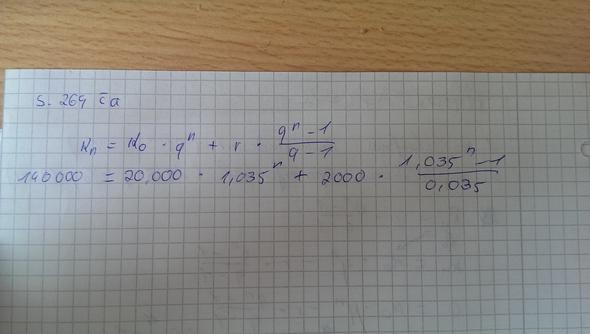 S. 264 ča
Kₙ = K₀ · qⁿ + r · (qⁿ - 1)/(q - 1)
140000 = 20,000 · 1,035ⁿ + 2000 · (1,035ⁿ - 1)/0,035